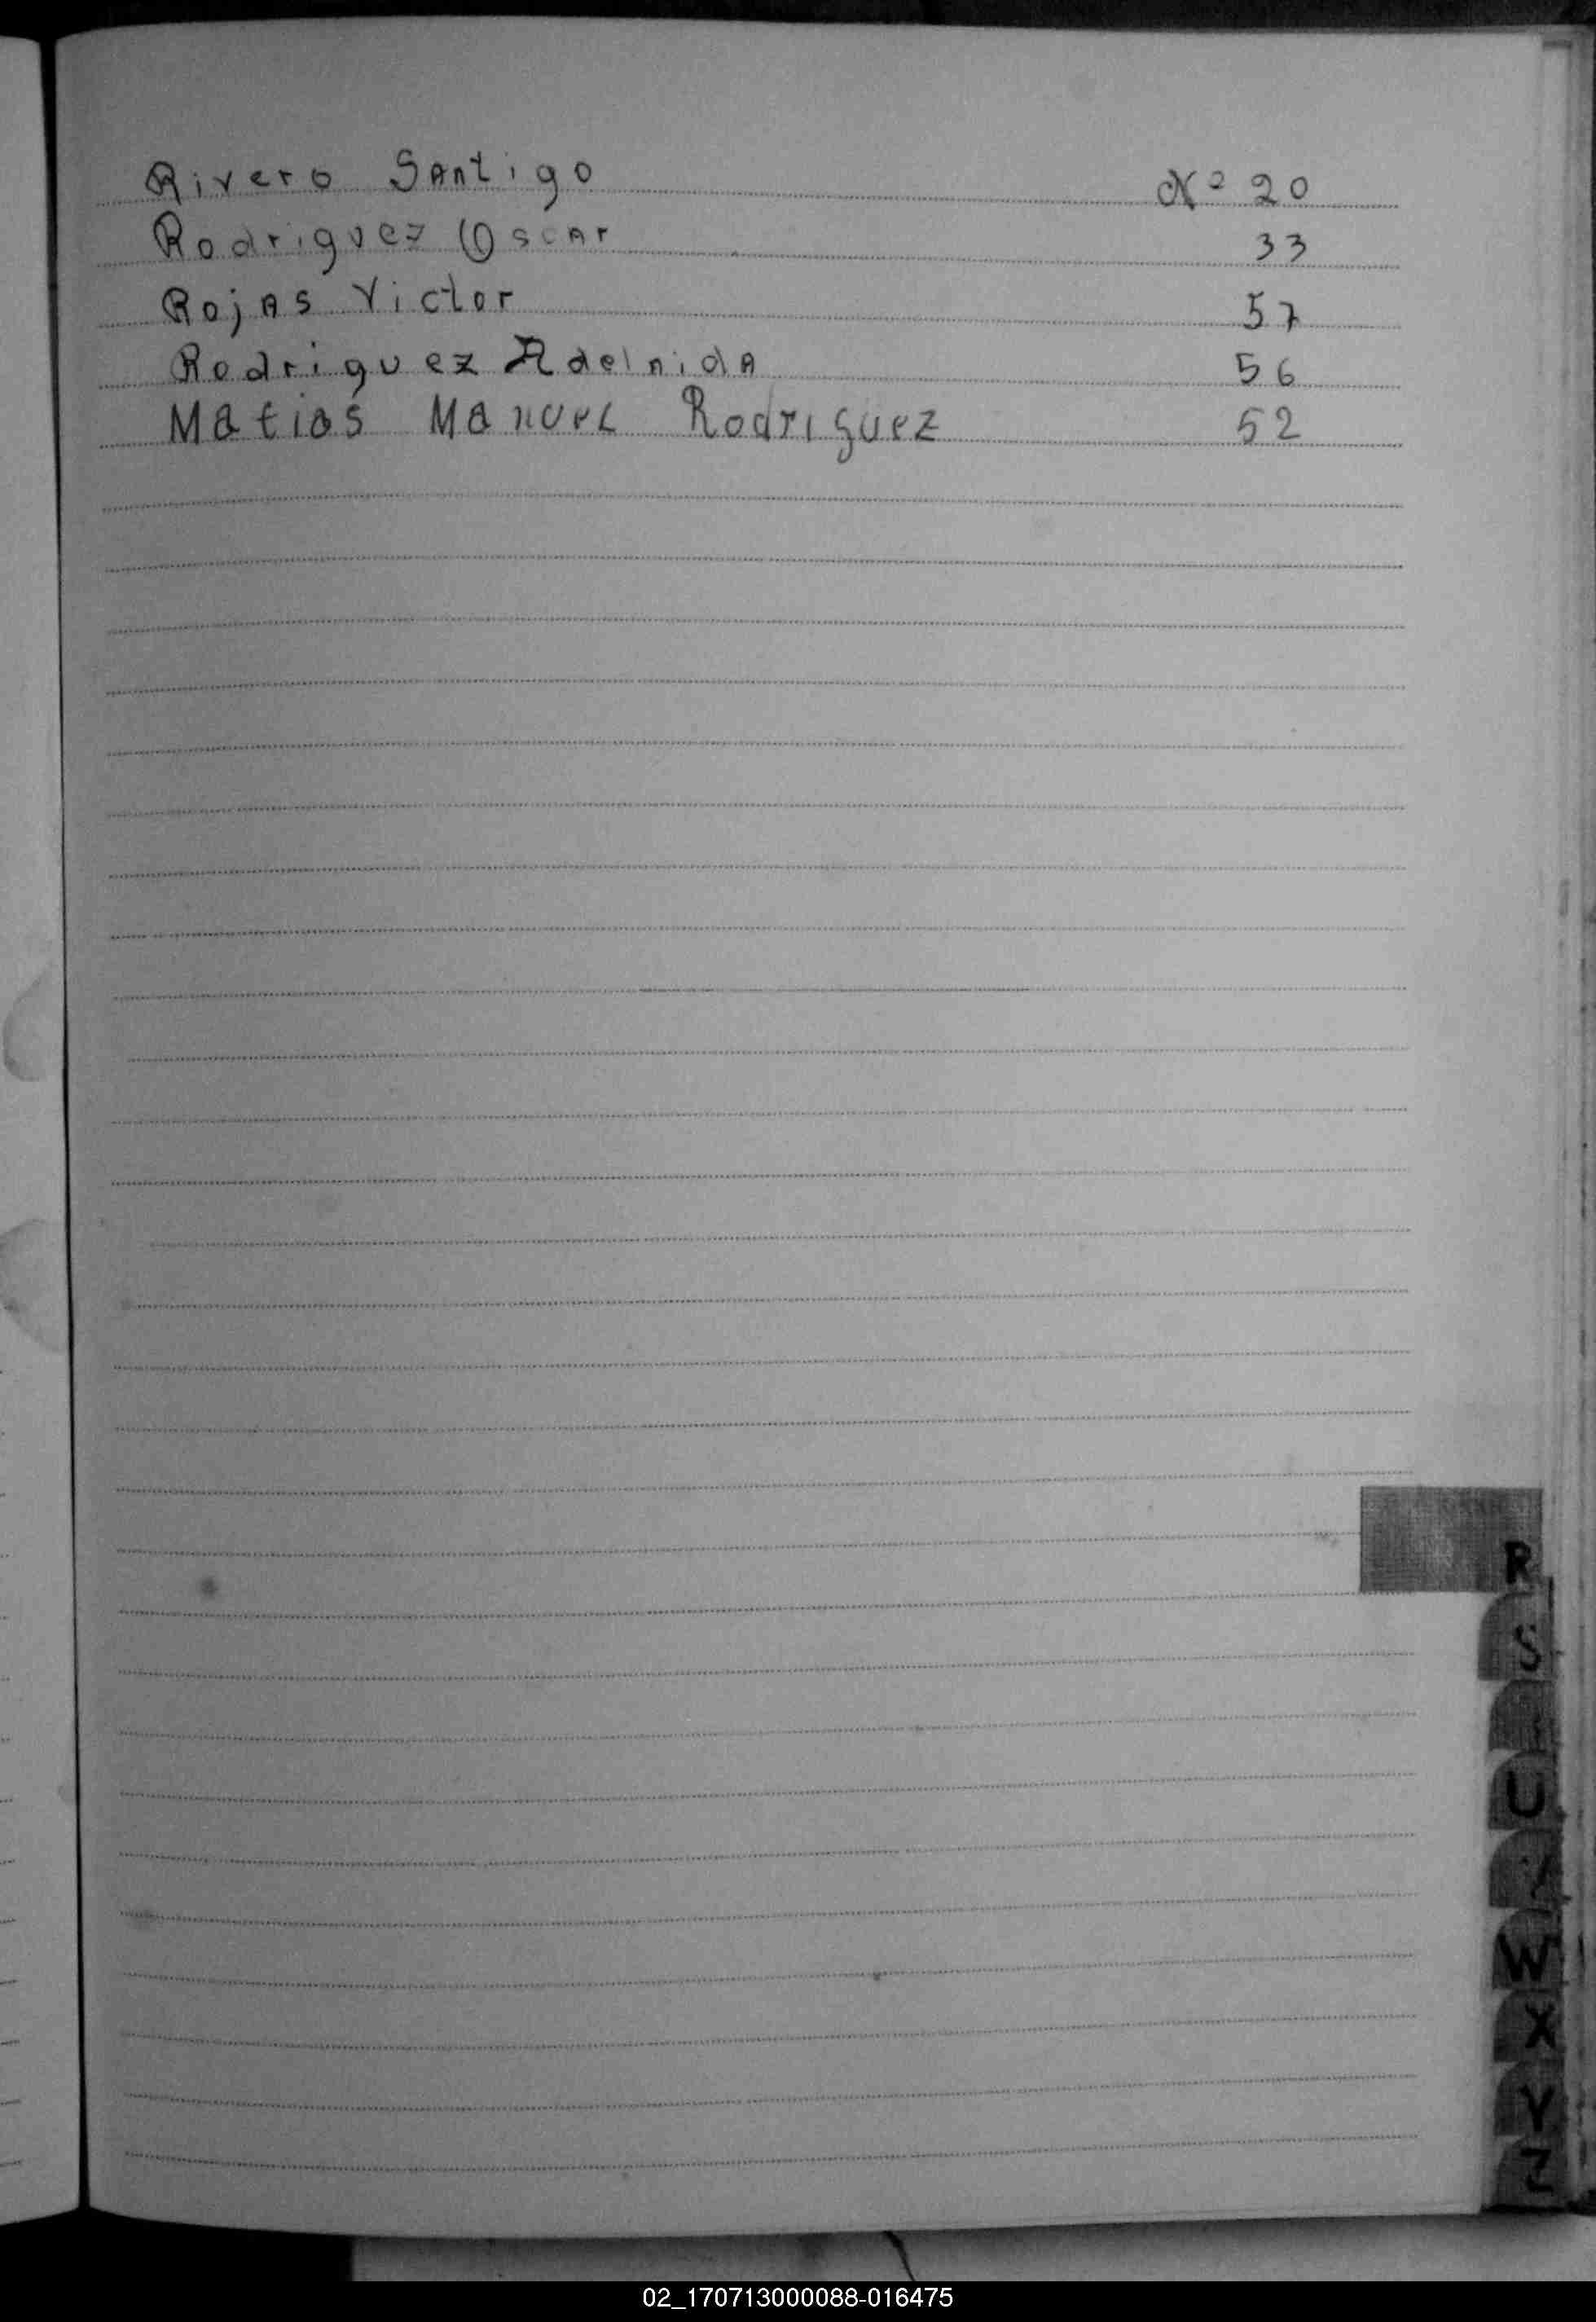 Rivero Santigo Nº 20
Rodriguez Oscar 33
Rojas Victor 57
Rodriguez Adelnida 56
Matias Manuel Rodriguez 52
R
S
U
W
X
Y
Z
02_170713000088-016475